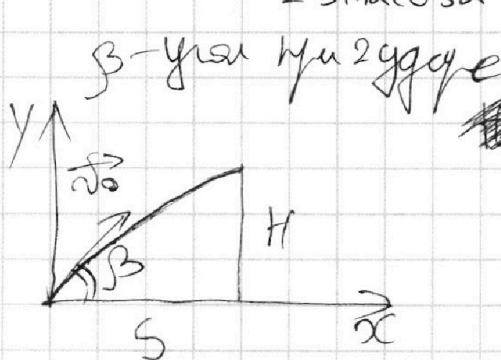 β - угол при 2 ударе
y
v⃗₀
H
β
S
x